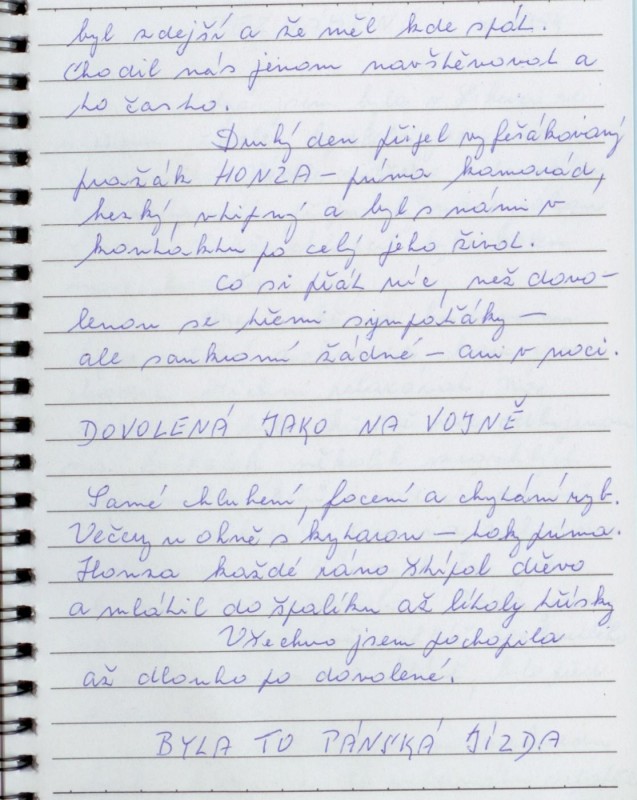 byl zdejší a že měl kde spát.
Chodil nás jenom navštěvovat a
to často.
Druhý den přijel vyfešákovaný
pražák HONZA – príma kamarád,
hezký, vtipný a byl s námi v
kontaktu po celý jeho život.
Co si přát víc, než dovo-
lenou se třemi sympaťáky –
ale soukromí žádné – ani v noci.
DOVOLENÁ JAKO NA VOJNĚ
Samé chlubení, focení a chytání ryb.
Večery u ohně s kytarou – taky príma.
Honza každé ráno štípal dřevo
a mlátil do špalíku až lítaly třísky
Všechno jsem pochopila
až dlouho po dovolené.
BYLA TO PÁNSKÁ JÍZDA